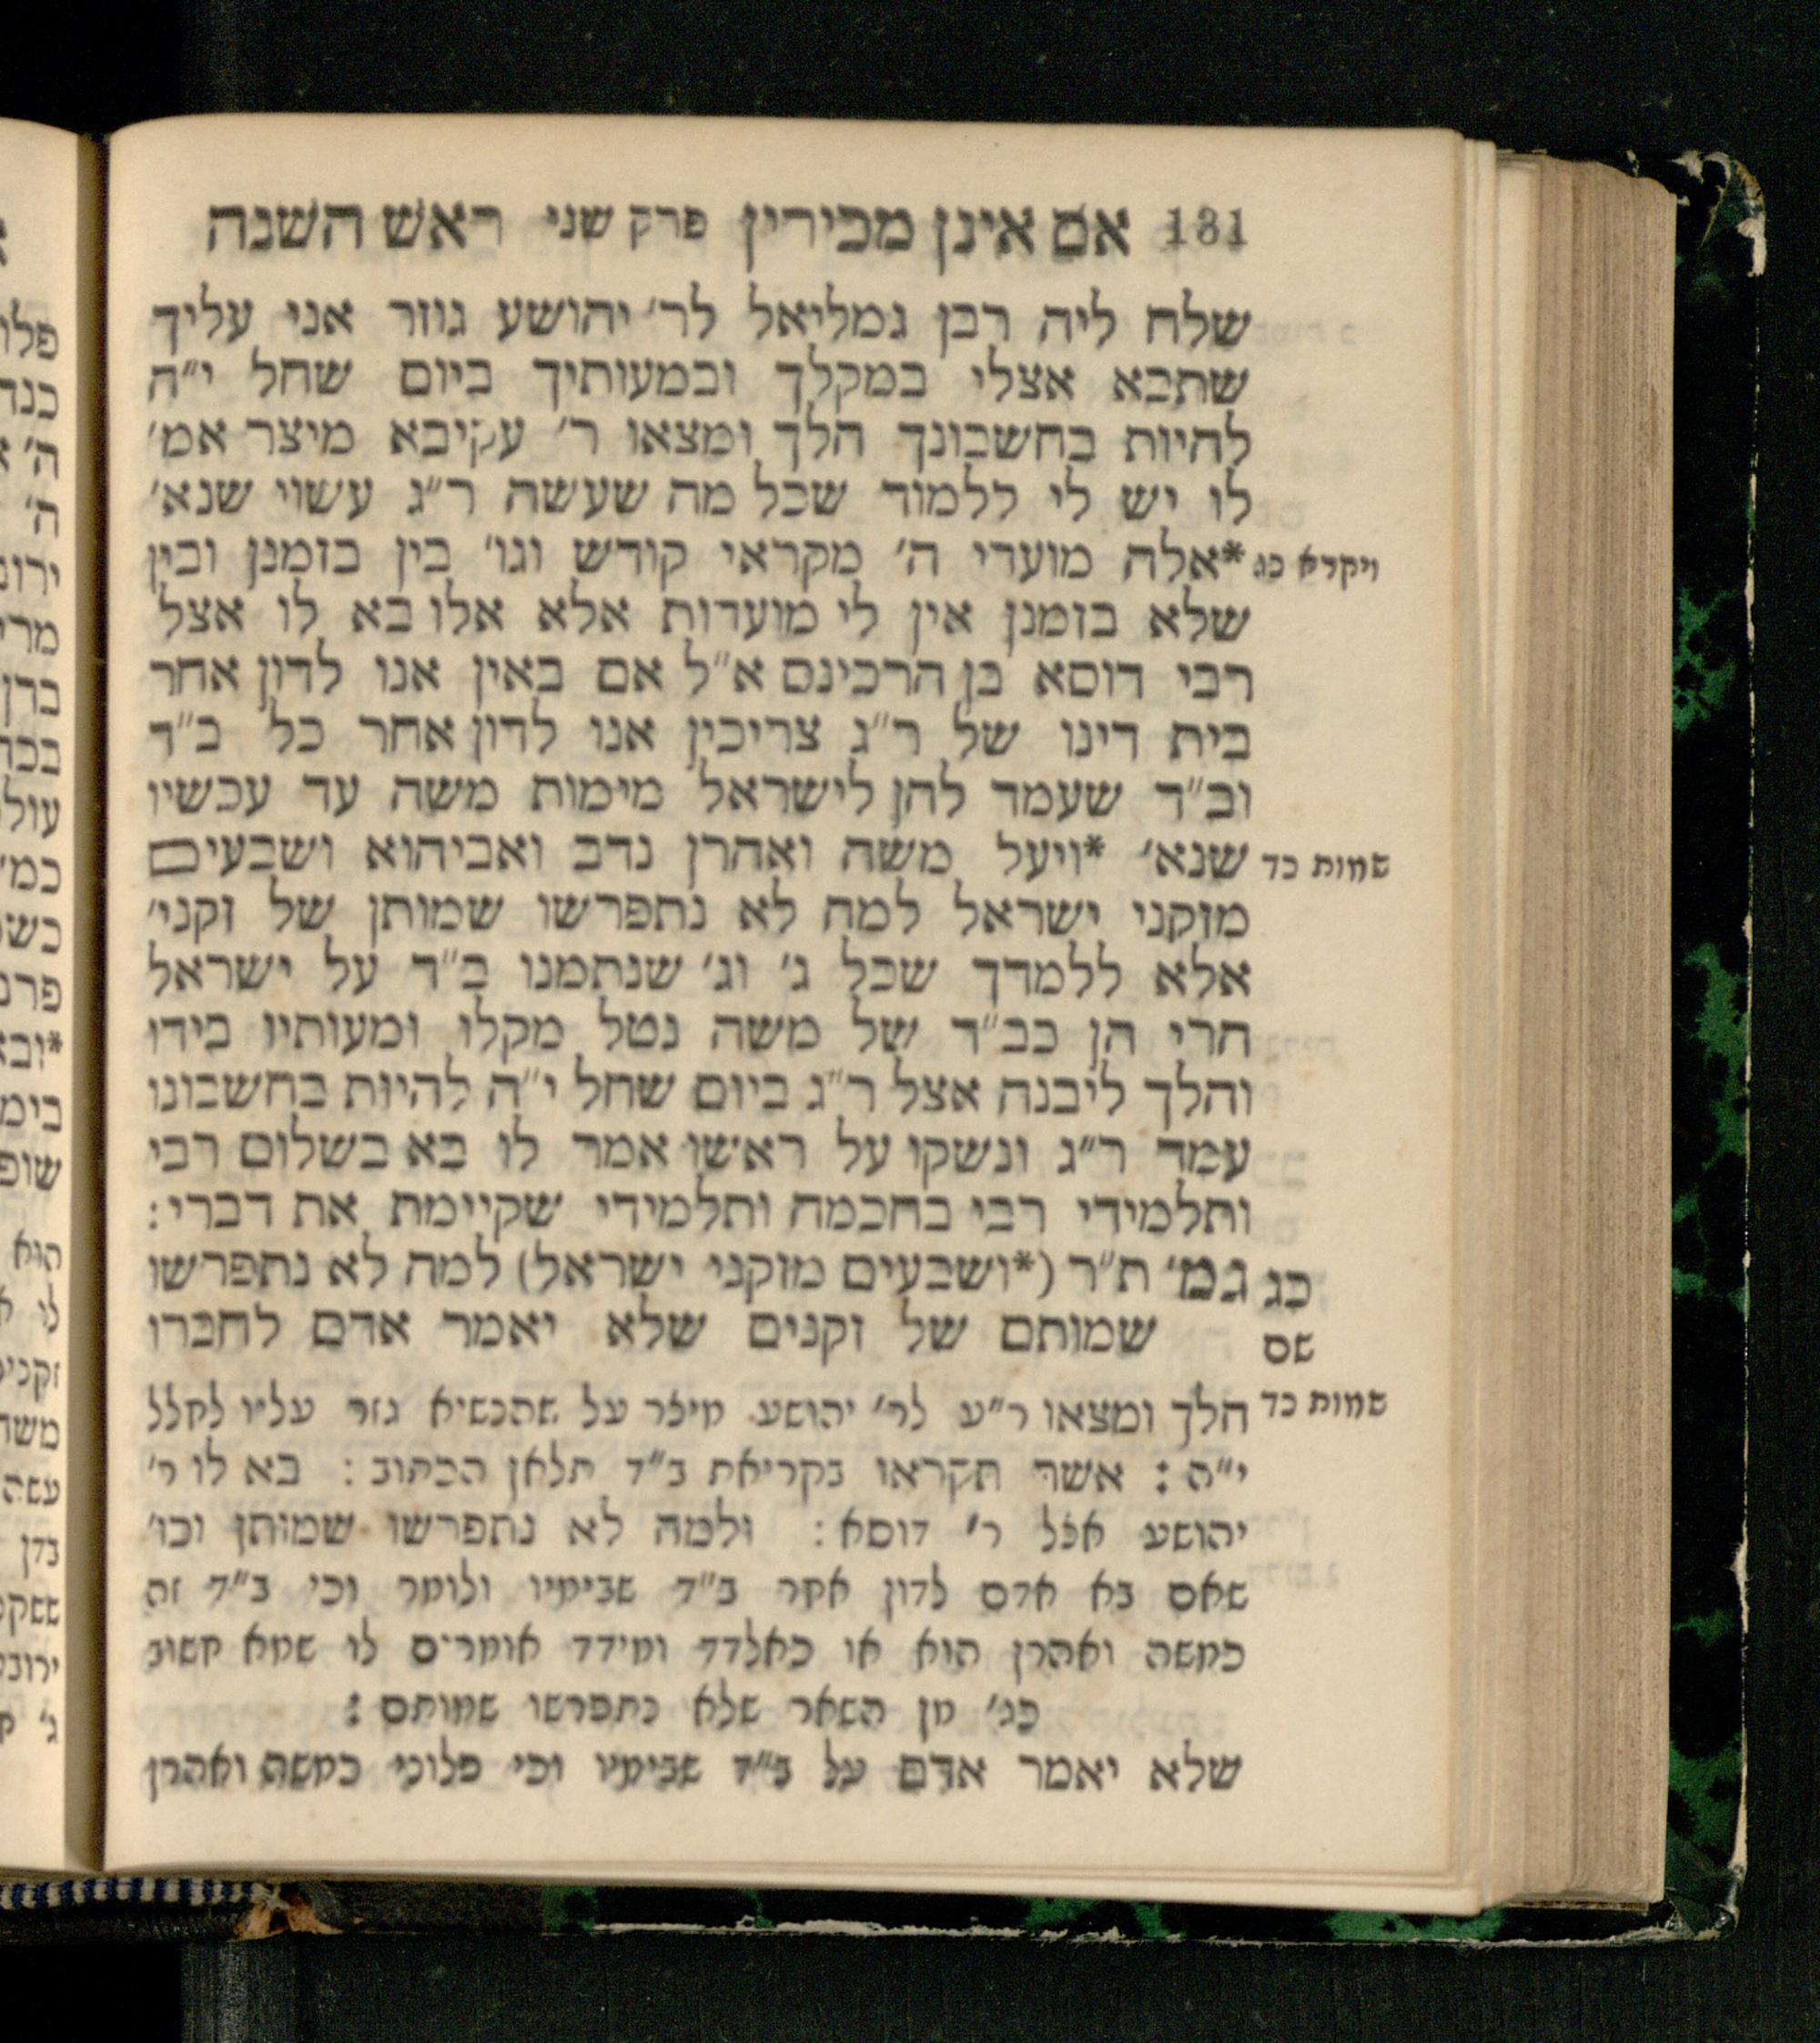 131 אם אינן מכירין פרק שני ראש השנה
שלח ליה רבן גמליאל לר׳ יהושע גוזר אני עליך
שתבא אצלי במקלך ובמעותיך ביום שחל י״ה
להיות בחשבונך הלך ומצאו ר׳ עקיבא מיצר אמ׳
לו יש לי ללמוד שכל מה שעשה ר״ג עשוי שנא׳
ויקרא כג *אלה מועדי ה׳ מקראי קודש וגו׳ בין בזמנן ובין
שלא בזמנן אין לי מועדות אלא אלו בא לו אצל
רבי דוסא בן הרכינס א״ל אם באין אנו לדון אחר
בית דינו של ר״ג צריכין אנו לדון אחר כל ב״ד
וב״ד שעמד להן לישראל מימות משה עד עכשיו
שמות כד שנא׳ *ויעל משה ואהרן נדב ואביהוא ושבעים
מזקני ישראל למה לא נתפרשו שמותן של זקני׳
אלא ללמדך שכל ג׳ וג׳ שנתמנו ב״ד על ישראל
הרי הן כב״ד של משה נטל מקלו ומעותיו בידו
והלך ליבנה אצל ר״ג ביום שחל י״ה להיות בחשבונו
עמד ר״ג ונשקו על ראשו אמר לו בא בשלום רבי
ותלמידי רבי בחכמה ותלמידי שקיימת את דברי:
כג גמ׳ ת״ר (*ושבעים מזקני ישראל) למה לא נתפרשו
שם שמותם של זקנים שלא יאמר אדם לחברו
שמות כד הלך ומצאו ר״ע לר׳ יהושע מיצר על שהנשיא גזר עליו לחלל
י״ה: אשר תקראו בקריאת ב״ד תלאן הכתוב: בא לו ר׳
יהושע אצל ר׳ דוסא: ולמה לא נתפרשו שמותן וכו׳
שאם בא אדם לדון אחר ב״ד שבימיו ולומר וכי ב״ד זה
כמשה ואהרן הוא או כאלדד ומידד אומרים לו שמא חשוב
כג׳ מן השאר שלא נתפרשו שמותם:
שלא יאמר אדם על ב״ד שבימיו וכי פלוני כמשה ואהרן